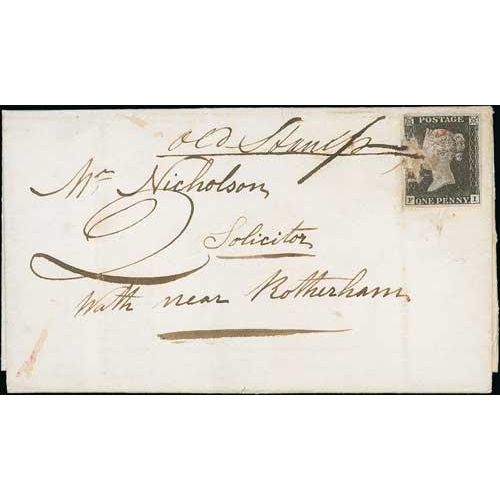 Old Stamp
POSTAGE
ONE PENNY
Mr. Nicholson
2
Solicitor
Wath near Rotherham